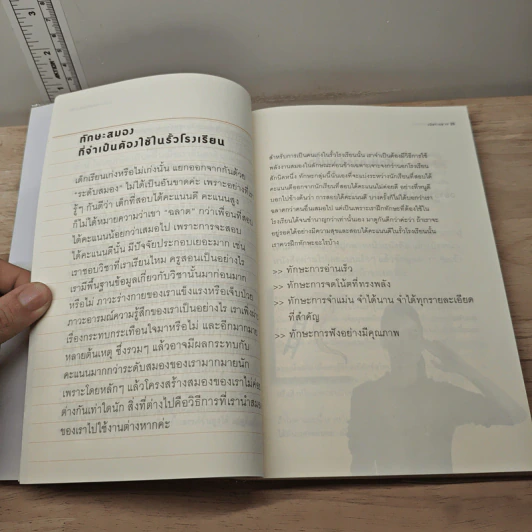 ทักษะสมอง
ที่จำเป็นต้องใช้ในรั้วโรงเรียน
เด็กเรียนเก่งหรือไม่เก่งนั้น แยกออกจากกันด้วย
"ระดับสมอง" ไม่ได้เป็นอันขาดค่ะ เพราะอย่างที่
รู้ๆ กันดีว่า เด็กที่สอบได้คะแนนดี คะแนนสูง
ก็ไม่ได้หมายความว่าเขา "ฉลาด" กว่าเพื่อนที่สอบ
ได้คะแนนน้อยกว่าเสมอไป เพราะการจะสอบ
ได้คะแนนดีนั้น มีปัจจัยประกอบเยอะมาก เช่น
เราชอบวิชาที่เราเรียนไหม ครูสอนเป็นอย่างไร
เรามีพื้นฐานข้อมูลเกี่ยวกับวิชานั้นมาก่อนมาก
หรือไม่ ภาวะร่างกายของเราแข็งแรงหรือเจ็บป่วย
ภาวะอารมณ์ความรู้สึกของเราเป็นอย่างไร เราเพิ่ง
เรื่องกระทบกระเทือนใจมาหรือไม่ และอีกมากมาย
หลายต้นเหตุ ซึ่งรวมๆ แล้วอาจมีผลกระทบกับ
คะแนนมากกว่าระดับสมองของเรามากมายนัก
เพราะโดยหลักๆ แล้วโครงสร้างสมองของเราไม่ค่อย
ต่างกันเท่าใดนัก สิ่งที่ต่างไปคือวิธีการที่เรานำสมอง
ของเราไปใช้งานต่างหากค่ะ
สำหรับการเป็นคนเก่งในรั้วโรงเรียนนั้น เราจำเป็นต้องมีวิธีการใช้
พลังงานสมองในลักษณะค่อนข้างเฉพาะเจาะจงกว่านอกโรงเรียน
สักนิดหนึ่ง ทักษะกลุ่มนี้นั่นเองที่จะแบ่งระหว่างนักเรียนที่สอบได้
คะแนนดีออกจากนักเรียนที่สอบได้คะแนนไม่ค่อยดี อย่างที่หนูดี
บอกไปข้างต้นว่า การสอบได้คะแนนดี บางครั้งก็ไม่ได้บอกว่าเรา
ฉลาดกว่าคนอื่นเสมอไป แต่เป็นเพราะเราฝึกทักษะที่ต้องใช้ใน
โรงเรียนได้จนชำนาญกว่าเท่านั้นเอง มาดูกันดีกว่าค่ะว่า ถ้าเราจะ
อยู่รอดได้อย่างมีความสุขและสอบได้คะแนนดีในรั้วโรงเรียนนั้น
เราควรฝึกทักษะอะไรบ้าง
>> ทักษะการอ่านเร็ว
>> ทักษะการจดโน้ตที่ทรงพลัง
>> ทักษะการจำแม่น จำได้นาน จำได้ทุกรายละเอียด
ที่สำคัญ
>> ทักษะการฟังอย่างมีคุณภาพ